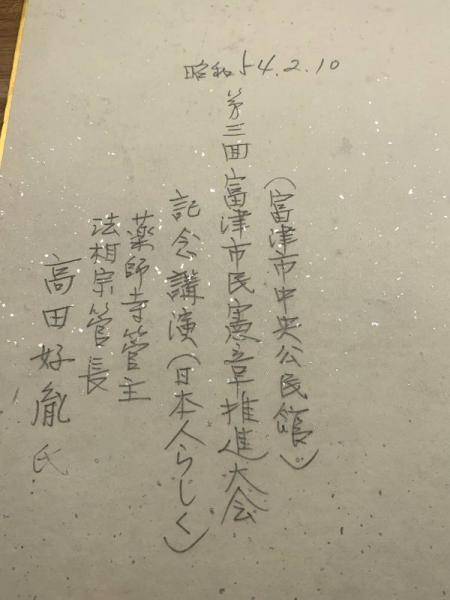 昭和54.2.10
(富津市中央公民館)
第三回富津市民憲章推進大会
記念講演(日本人らしく)
薬師寺管主
法相宗管長
高田好胤氏